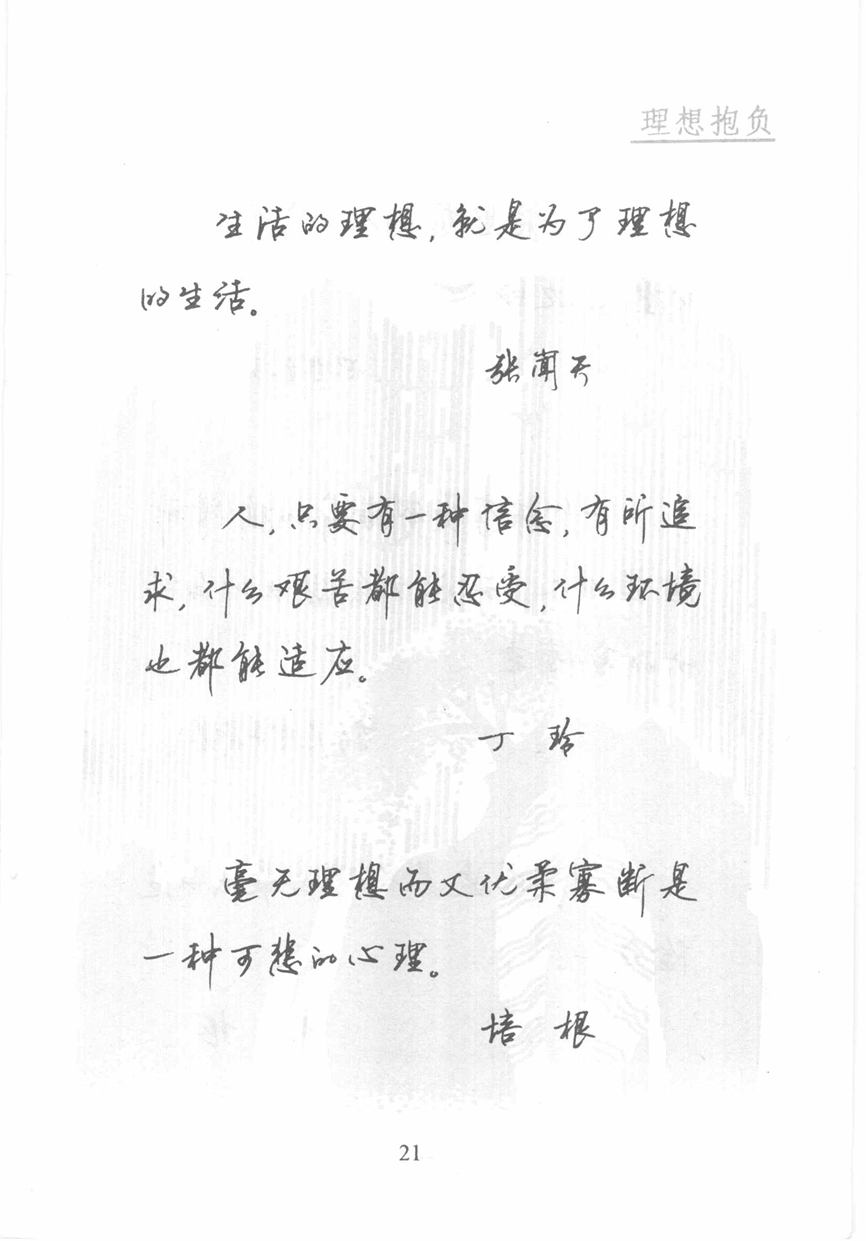 理想抱负
生活的理想，就是为了理想
的生活。
张闻天
人，只要有一种信念，有所追
求，什么艰苦都能忍受，什么环境
也都能适应。
丁 玲
毫无理想而又优柔寡断是
一种可悲的心理。
培 根
21